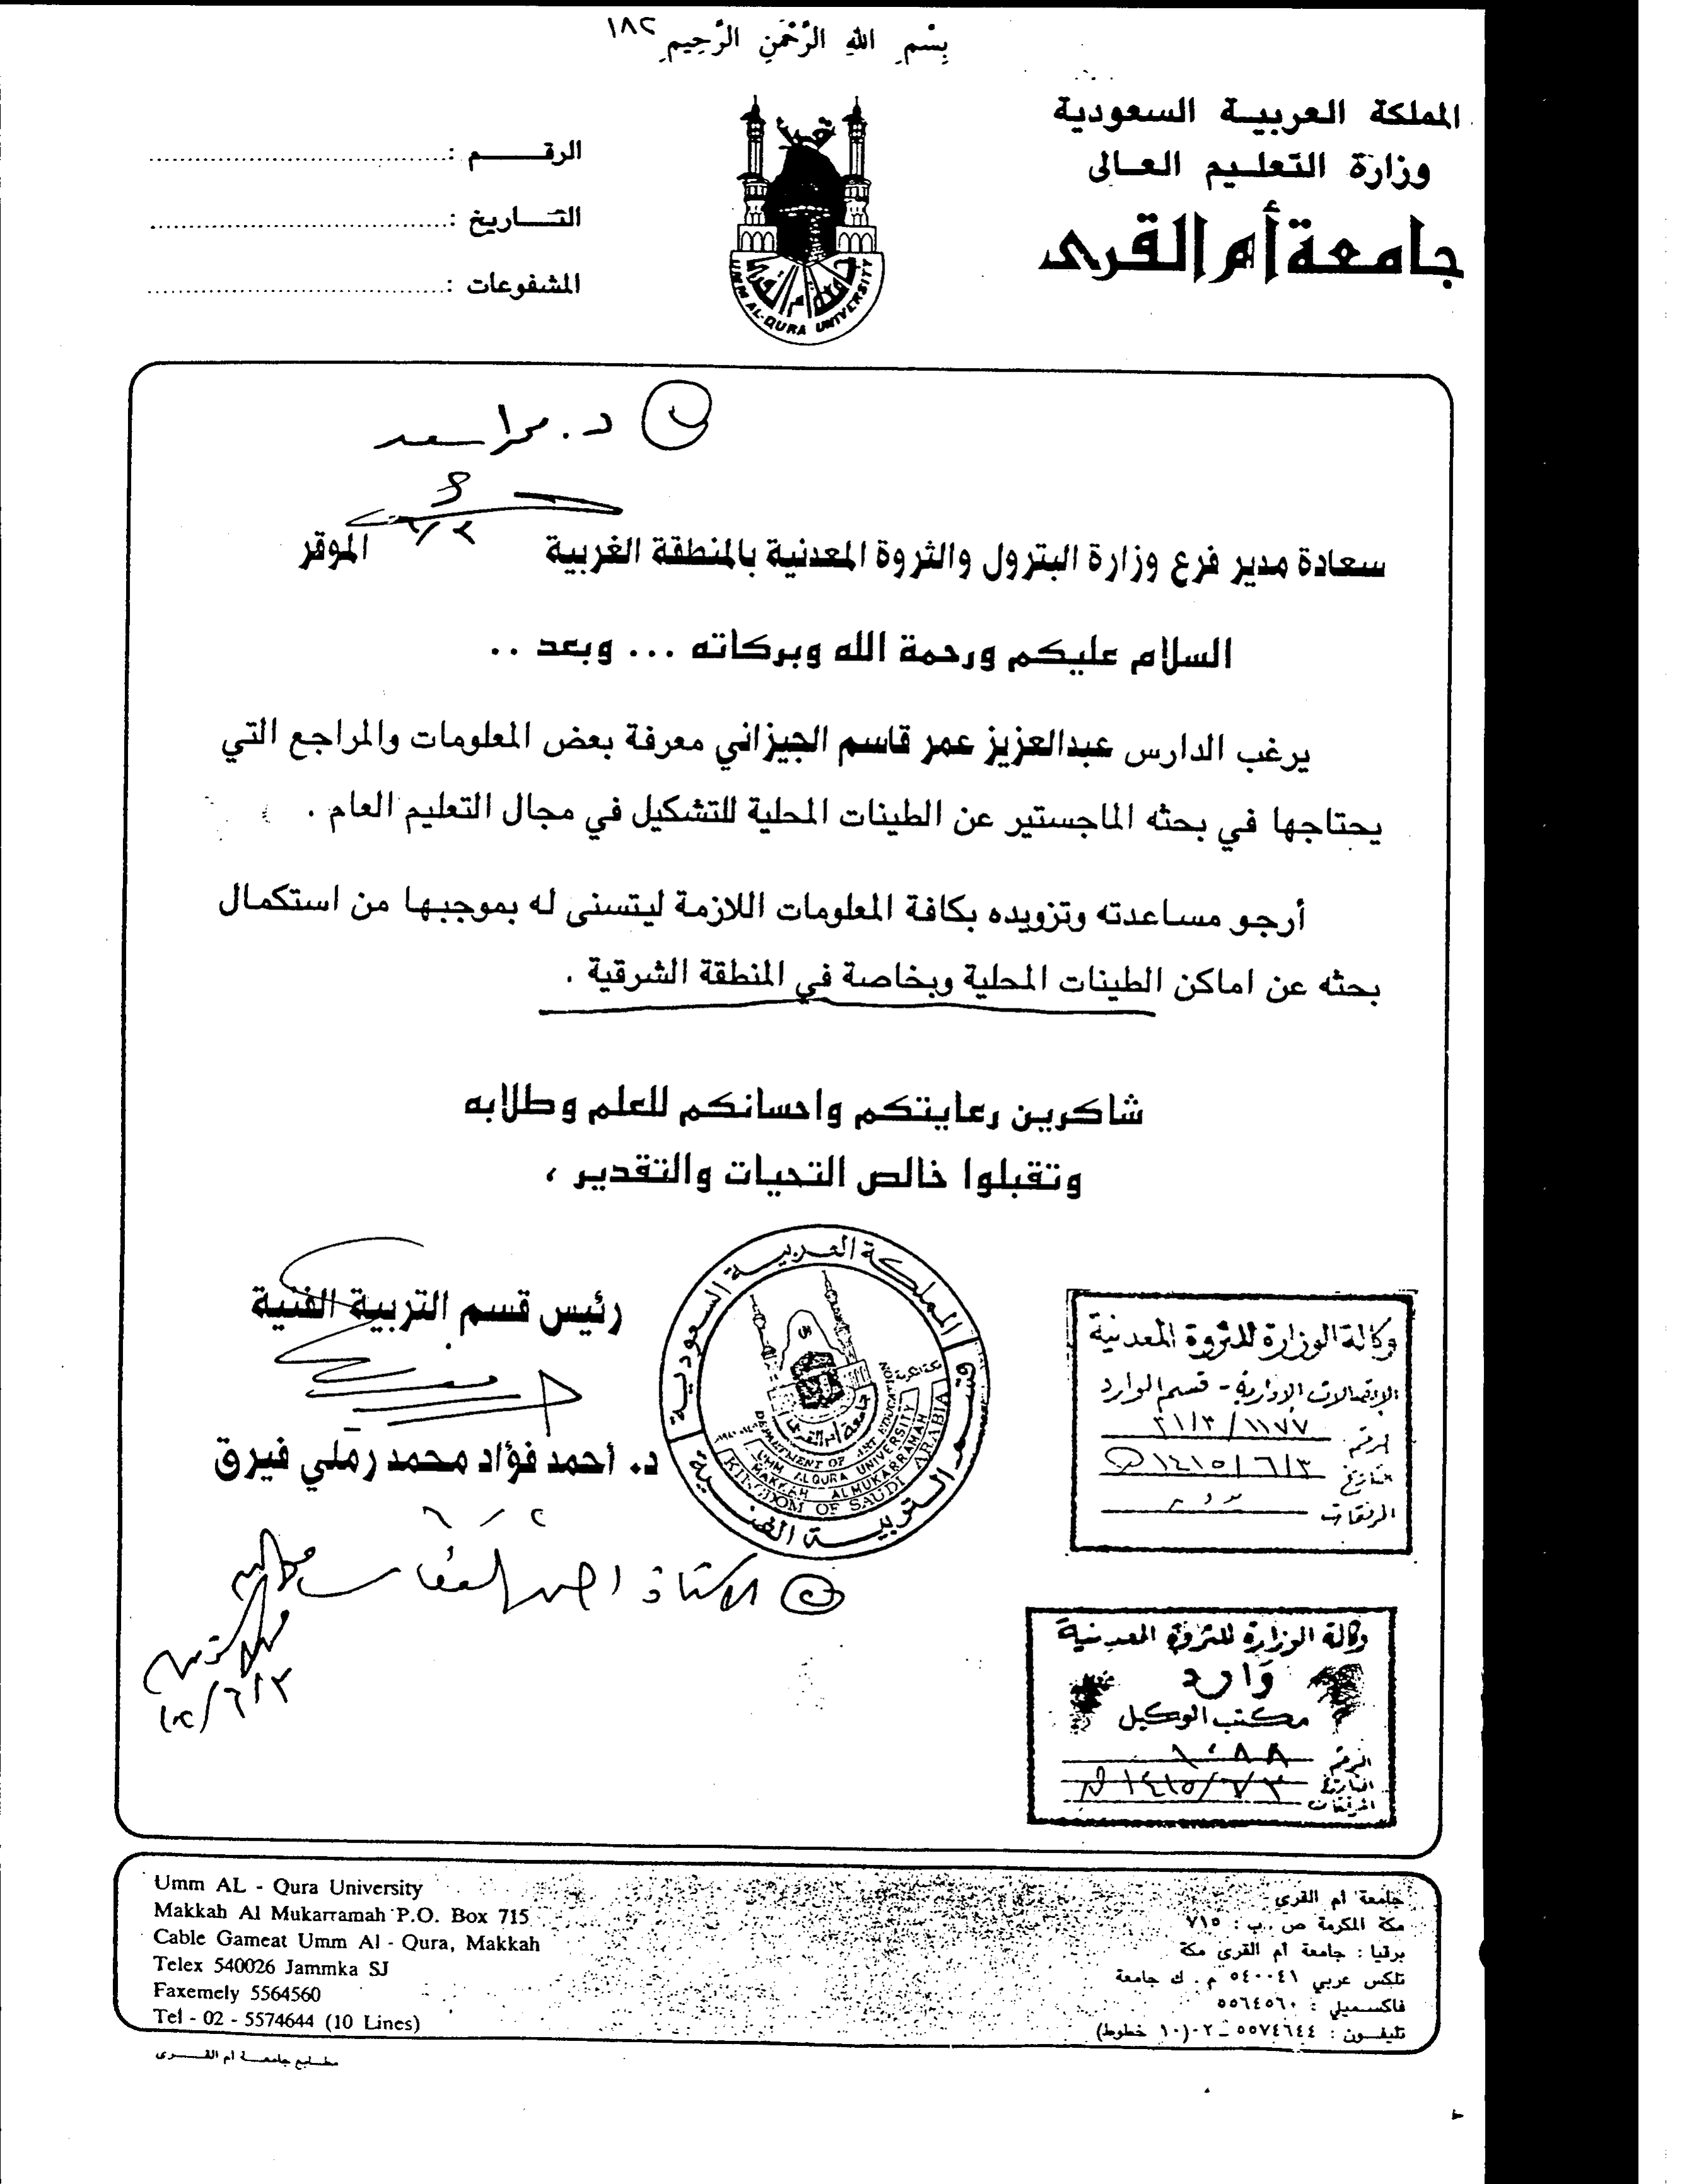 بِسْمِ اللهِ الرَّحْمَنِ الرَّحِيمِ ١٨٢
المملكة العربية السعودية
وزارة التعليم العالى
جامعة أم القرى
الرقم :
التاريخ :
المشفوعات :
UMM AL-QURA UNIVERSITY
د.
سعادة مدير فرع وزارة البترول والثروة المعدنية بالمنطقة الغربية الموقر
السلام عليكم ورحمة الله وبركاته ... وبعد ..
يرغب الدارس عبدالعزيز عمر قاسم الجيزاني معرفة بعض المعلومات والمراجع التي
يحتاجها في بحثه الماجستير عن الطينات المحلية للتشكيل في مجال التعليم العام .
أرجو مساعدته وتزويده بكافة المعلومات اللازمة ليتسنى له بموجبها من استكمال
بحثه عن اماكن الطينات المحلية وبخاصة في المنطقة الشرقية .
شاكرين رعايتكم واحسانكم للعلم وطلابه
وتقبلوا خالص التحيات والتقدير ،
رئيس قسم التربية الفنية
د. احمد فؤاد محمد رملي فيرق
المملكة العربية السعودية
قسم التربية الفنية
جامعة أم القرى
مكة المكرمة
DEPARTMENT OF ART EDUCATION
UMM ALQURA UNIVERSITY
MAKKAH ALMUKARRAMAH
KINGDOM OF SAUDI ARABIA
وكالة الوزارة للثروة المعدنية
الاتصالات الإدارية - قسم الوارد
برقم ٣١/٣/١١٧٧
بتاريخ ١٤١٥/٦/٣
المرفقات
الاستاذ
وكالة الوزارة للثروة المعدنية
وارد
مكتب الوكيل
الرقم
التاريخ ١٤١٥/٦/٣
المرفقات
Umm AL - Qura University
Makkah Al Mukarramah P.O. Box 715
Cable Gameat Umm Al - Qura, Makkah
Telex 540026 Jammka SJ
Faxemely 5564560
Tel - 02 - 5574644 (10 Lines)
جامعة أم القرى
مكة المكرمة ص . ب : ٧١٥
برقيا : جامعة أم القرى مكة
تلكس عربي ٥٤٠٠٤١ م . ك جامعة
فاكسميلي : ٥٥٦٤٥٦٠
تليفون : ٥٥٧٤٦٤٤ - ٠٢ (١٠ خطوط)
مطابع جامعة أم القرى